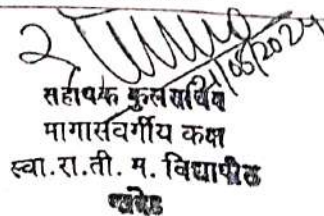 सहायक कुलसचिव
मागासवर्गीय कक्ष
स्वा.रा.ती.म. विद्यापीठ
नांदेड